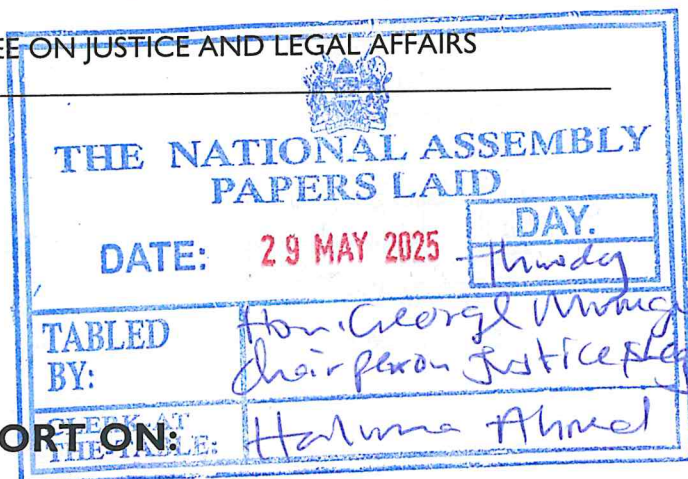 EE ON JUSTICE AND LEGAL AFFAIRS
THE NATIONAL ASSEMBLY
PAPERS LAID
DAY.
DATE: 29 MAY 2025 Thursday
TABLED BY: Hon. George
Chairperson Justice &
CLERK AT THE-TABLE: Halima Ahmed
ORT ON: